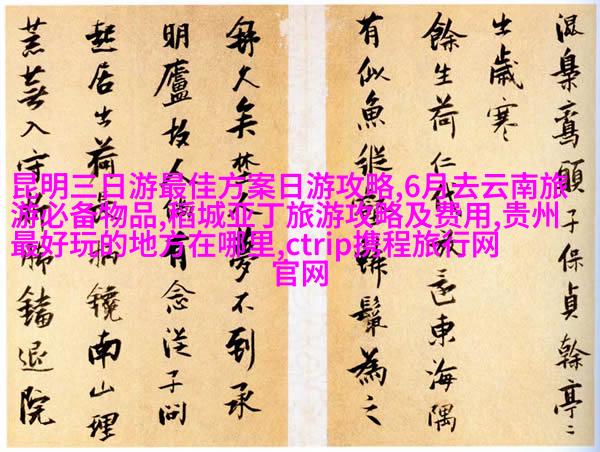 昆明三日游最佳方案日游攻略,6月去云南旅
游必备物品,稻城亚丁旅游攻略及费用,贵州
最好玩的地方在哪里,ctrip携程旅行网
官网
混梟鸞頭子保貞幹亭二
出歲寒
餘生荷仁東海隅
有似魚鬢為之
舒久矣夢不到承
明廬故人有念從子問
起居出荷鐃南山理
荒蕪入守退院